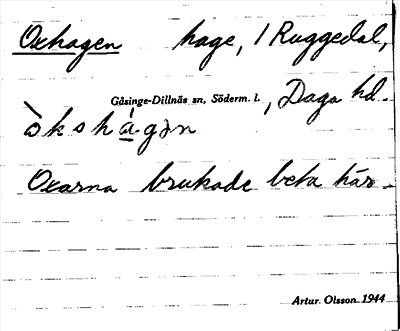 Oxhagen hage, 1 Ruggedal,
Gåsinge-Dillnäs sn, Söderm. l., Daga hd.
òkshá̱gən
Oxarna brukade beta här.
Artur Olsson 1944